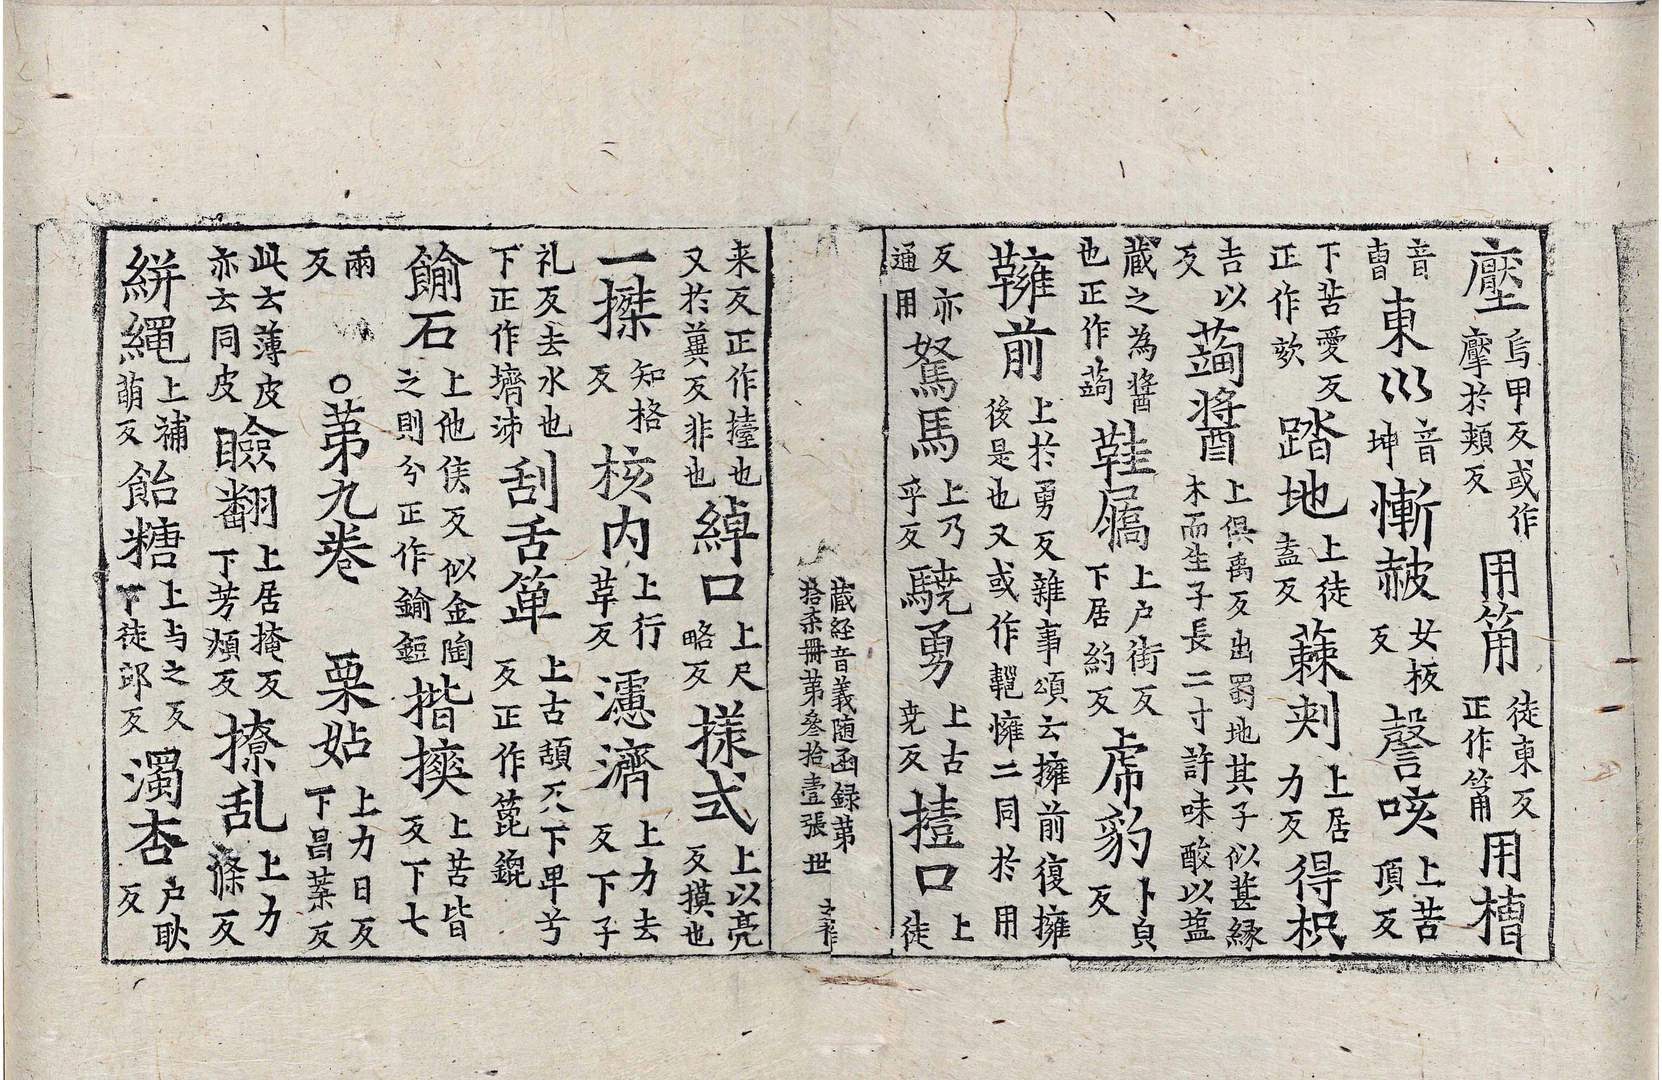 壓烏甲反或作壓於頰反用筩徒東反正作筩用槽
音曺東巛音坤慚赧女板反謦咳上苦頂反
下苦愛反正作欬踏地上徒盍反蕀刺上居力反得枳
吉以反蒟醬上俱禹反出蜀地其子似葚縁木而生子長二寸許味酸以盐
藏之為醬也正作蒟鞋屩上户街反下居約反虎豹卜皃反
鞾前上於勇反雜事頌云擁前復擁後是也又或作鞰㩴二同於用
反亦通用駑馬上乃乎反驍勇上古尭反擡口上徒
藏経音義随函録第
拾柒冊第叄拾壹張 世
来反正作擡也又於糞反非也綽口上尺略反樣式上以亮反摸也
一搩知格反核内上行革反濾濟上力去反下子
礼反去水也下正作擠泲刮舌箄上古頡反下畀兮反正作箆錕
鍮石上他侯反似金陶之則兮正作鍮鉔揩摤上苦皆反下七
兩反 ○第九巻 栗姑上力日反下昌葉反
此云薄皮亦云同皮瞼翻上居掩反下芳煩反撩乱上力滌反
絣繩上補萌反飴糖上与之反下徒郎反濁杏户耿反